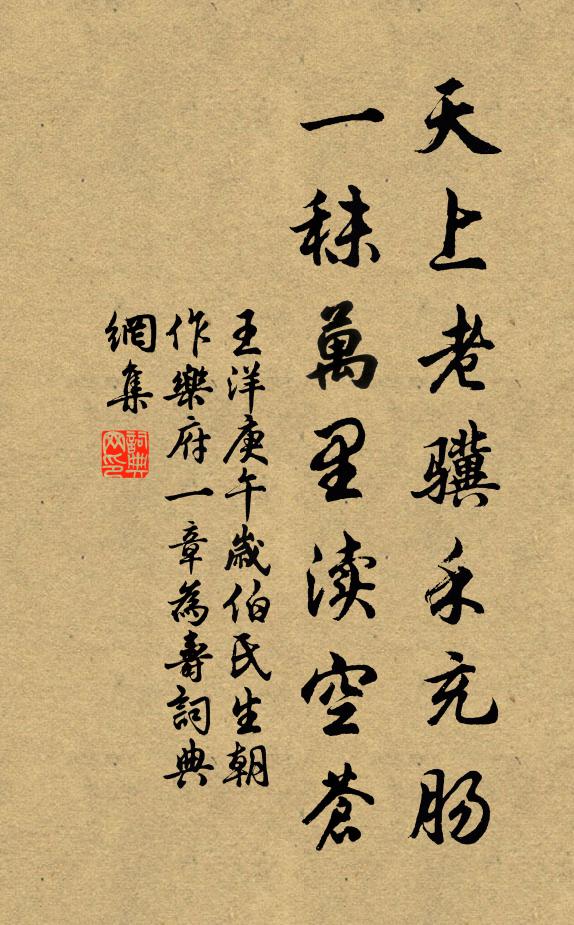 天上老骥禾充肠
一秣萬里渎空蒼
王洋庚午歲伯氏生朝
作樂府一章為壽詞典
網集
詞典
网印